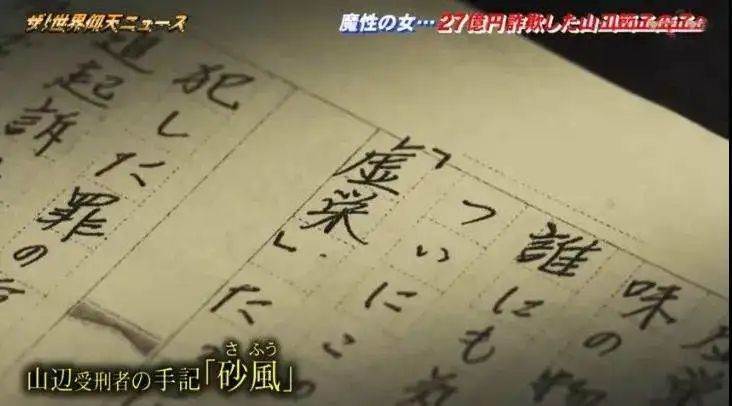 ザ!世界仰天ニュース
魔性の女…27億円詐欺した山辺
味の
誰にも気
ついに
「虚栄」
犯した罪の
追起訴
さふう
山辺受刑者の手記「砂風」